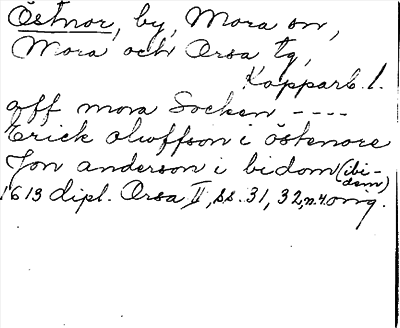 Östnor, by, Mora sn,
Mora och Orsa tg,
Kopparb. l.
off mora Socken ----
Erick oloffson i östenore
Jon anderson i bidom (ibi-
dem)
1613 dipl. Orsa II, ss. 31, 32, n.4. orig.